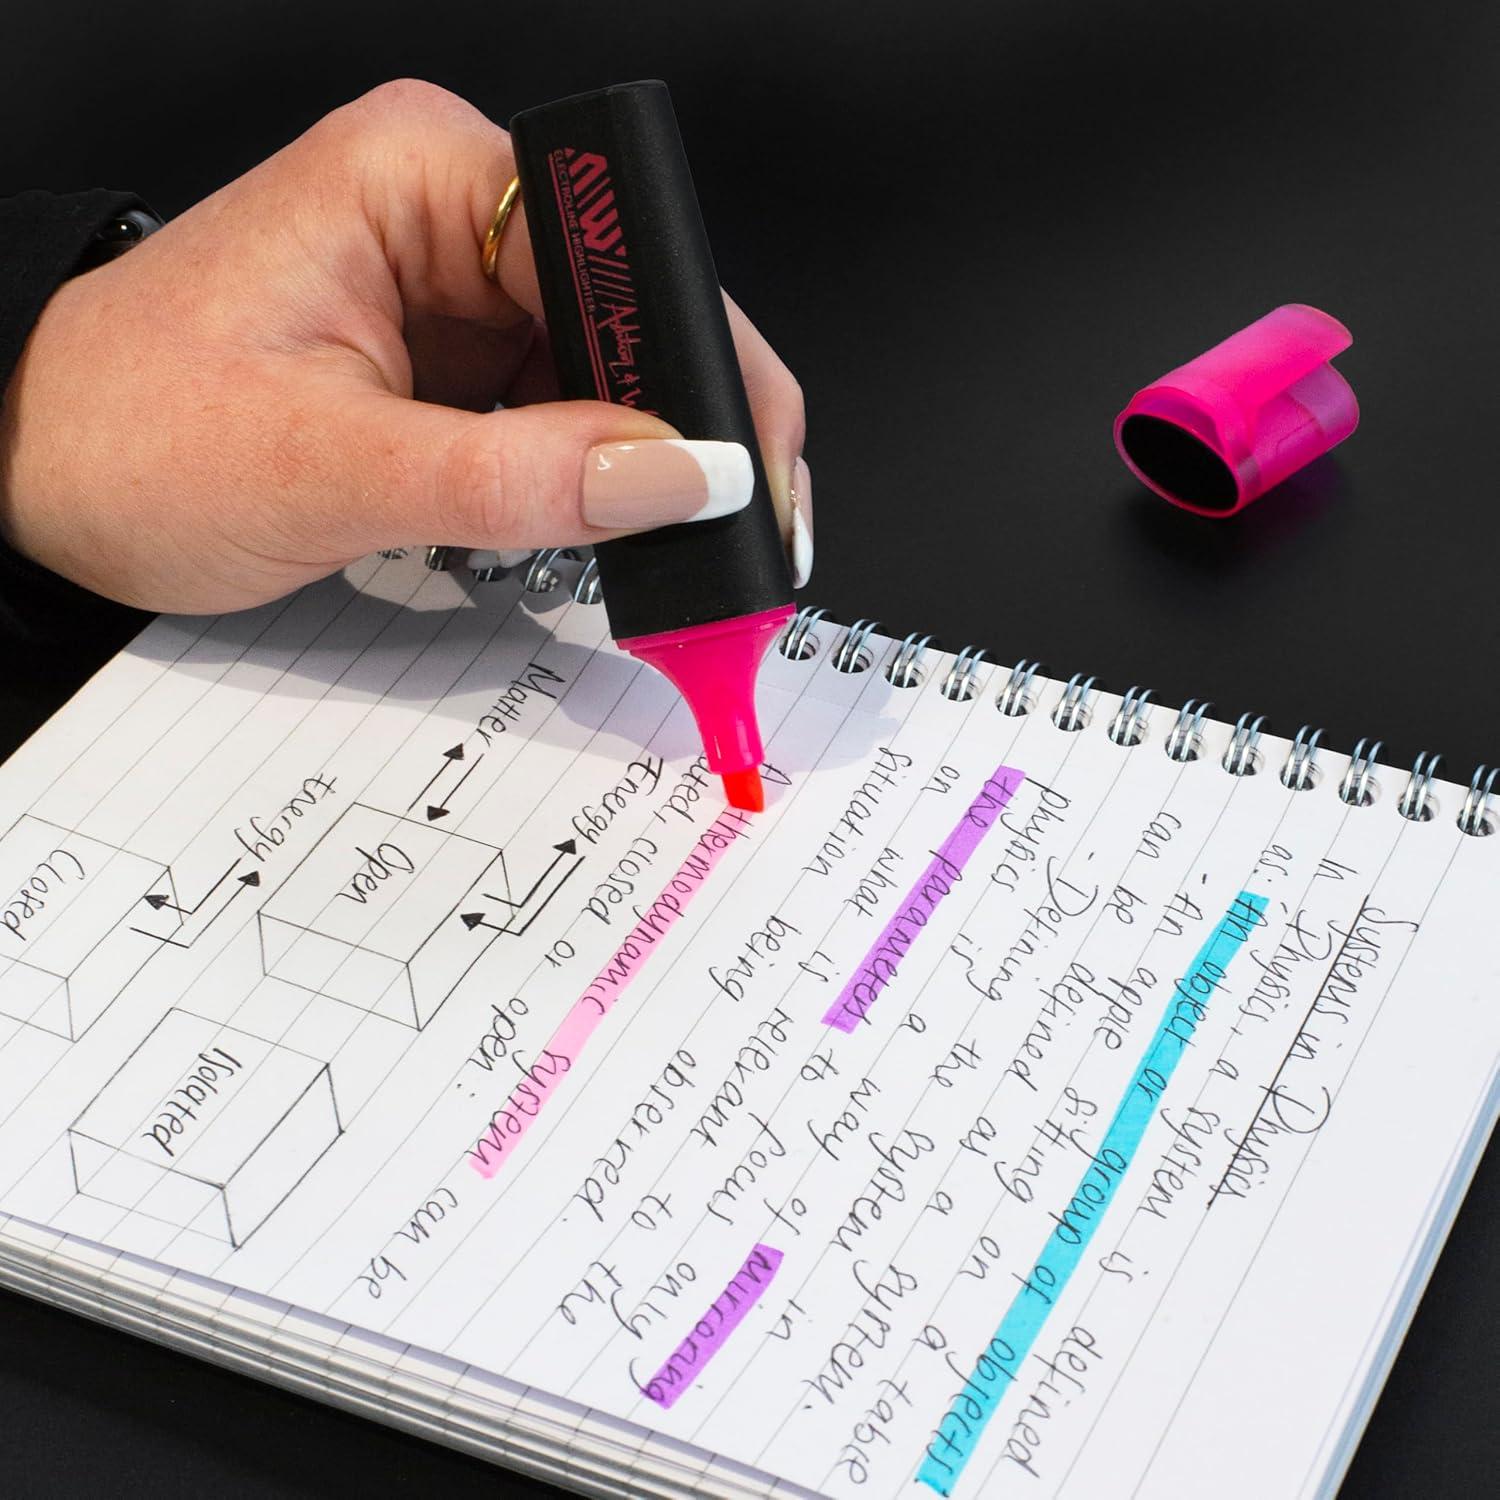 Systems in Physics.
In Physics, a system is defined
as: An object or group of objects
- An apple sitting on a table
can be defined as a system.
- Defining the system in
physics is a way of mirroring
the parameters to focus only
on what is relevant to the
situation being observed.
A thermodynamic system can be
ated, closed or open:
Energy
Matter
Open
Energy
Closed
Isolated
AW//// Ashton & W
ELECTROLINE HIGHLIGHTER